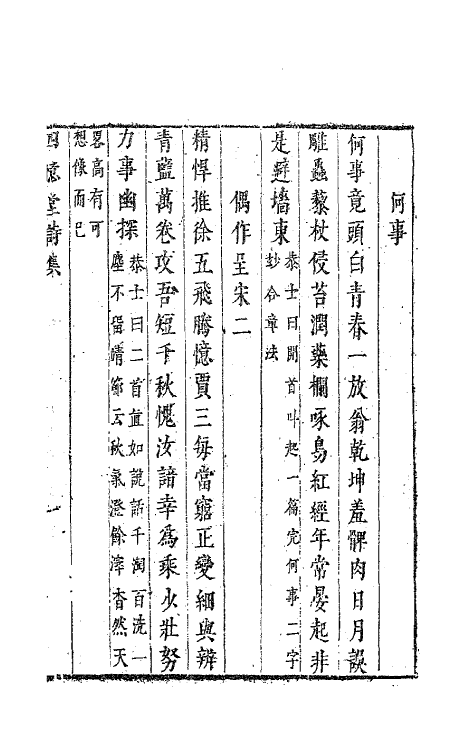 何事
何事竟頭白青春一放翁乾坤羞髀肉日月誤
雕蟲藜杖侵苔潤藥欄啄鳥紅經年常晏起非
是避墻東
恭士曰開首叫起一篇完何事二字
妙合章法
偶作呈宋二
精悍推徐五飛騰憶賈三每當窮正變細與辨
青藍萬卷攻吾短千秋愧汝諳幸爲乘少壯努
力事幽探
恭士曰二首直如說話千淘百洗一
塵不留靖節云秋氣澄餘滓杳然天
畧高有可
想像而已
四憶堂詩集